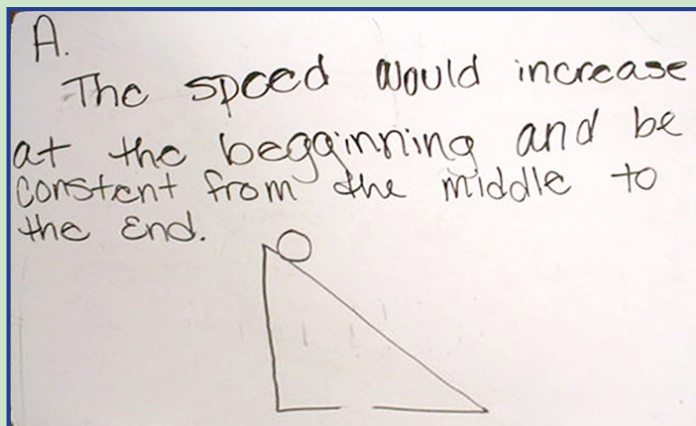 A.
The speed would increase
at the begginning and be
constent from the middle to
the End.